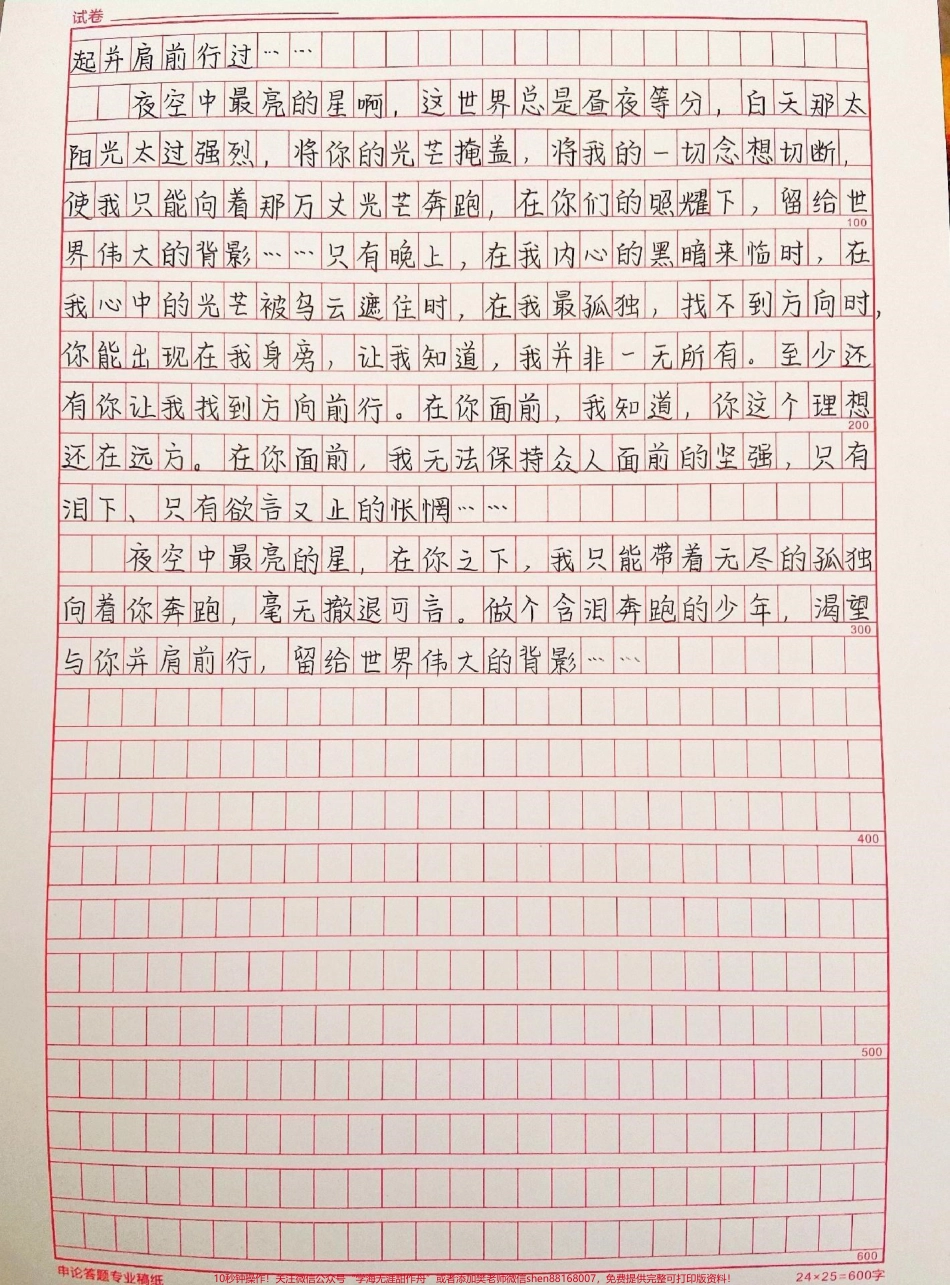 试卷
起并肩前行过……
夜空中最亮的星啊，这世界总是昼夜等分，白天那太
阳光太过强烈，将你的光芒掩盖，将我的一切念想切断，
使我只能向着那万丈光芒奔跑，在你们的照耀下，留给世
100
界伟大的背影……只有晚上，在我内心的黑暗来临时，在
我心中的光芒被乌云遮住时，在我最孤独，找不到方向时，
你能出现在我身旁，让我知道，我并非一无所有。至少还
有你让我找到方向前行。在你面前，我知道，你这个理想
200
还在远方。在你面前，我无法保持众人面前的坚强，只有
泪下、只有欲言又止的怅惘……
夜空中最亮的星，在你之下，我只能带着无尽的孤独
向着你奔跑，毫无撤退可言。做个含泪奔跑的少年，渴望
300
与你并肩前行，留给世界伟大的背影……
400
500
600
申论答题专业稿纸
10秒钟操作！关注微信公众号“学海无涯甜作舟”或者添加樊老师微信shen88168007，免费提供完整可打印版资料！
24×25=600字